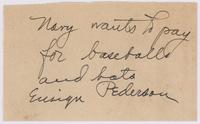 Navy wants to pay
for baseballs
and bats
Ensign Pederson